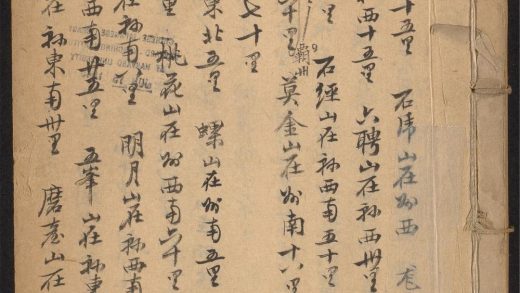 十五里 石虎山在州西
西十五里 六聘山在縣西卅里
里 石經山在縣西南五十
十里 霸州 莫金山在州南十六里
七十里
東北五里 螺山在州南五里
里 桃花山在州西南六十里
在縣南 里 明月山在縣西南
西南廿五里 五峯山在縣東
在縣東南卅里 磨臺山在